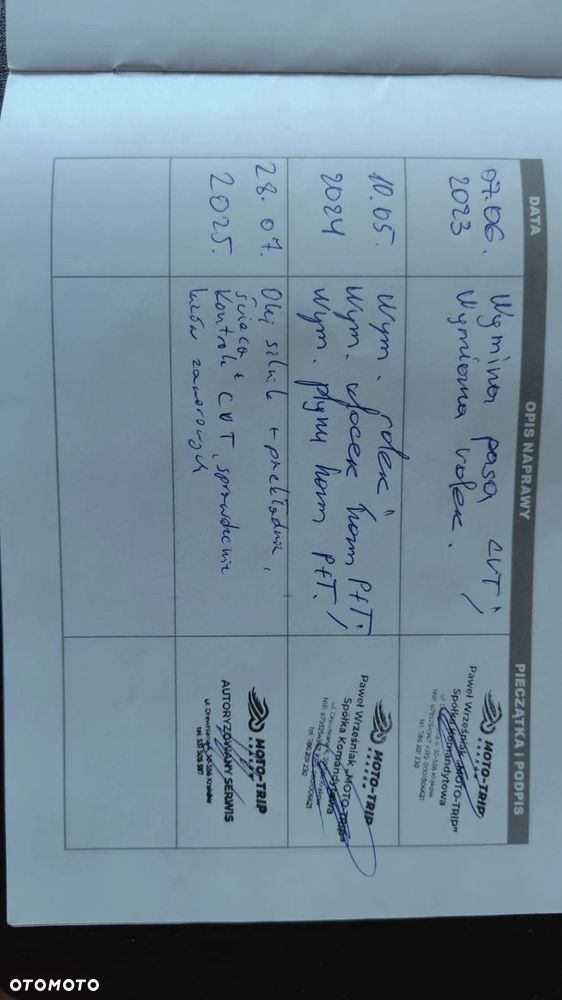 DATA OPIS NAPRAWY PIECZĄTKA i PODPIS
07.06.
2023
Wymina pasa CVT
Wymiana rolek.
MOTO-TRIP
Paweł Wrześniak „MOTO-TRIP”
Spółka Komandytowa
10.05.
2024
Wym. rolek
Wym. klocek ham P+T
Wym. płynu ham P+T.
MOTO-TRIP
Paweł Wrześniak „MOTO-TRIP”
Spółka Komandytowa
28.07.
2025.
Olej silnik + przekładnia,
świeca +
Kontrola CVT, sprawdzenie
luzów zaworowych
MOTO-TRIP
AUTORYZOWANY SERWIS
OTOMOTO